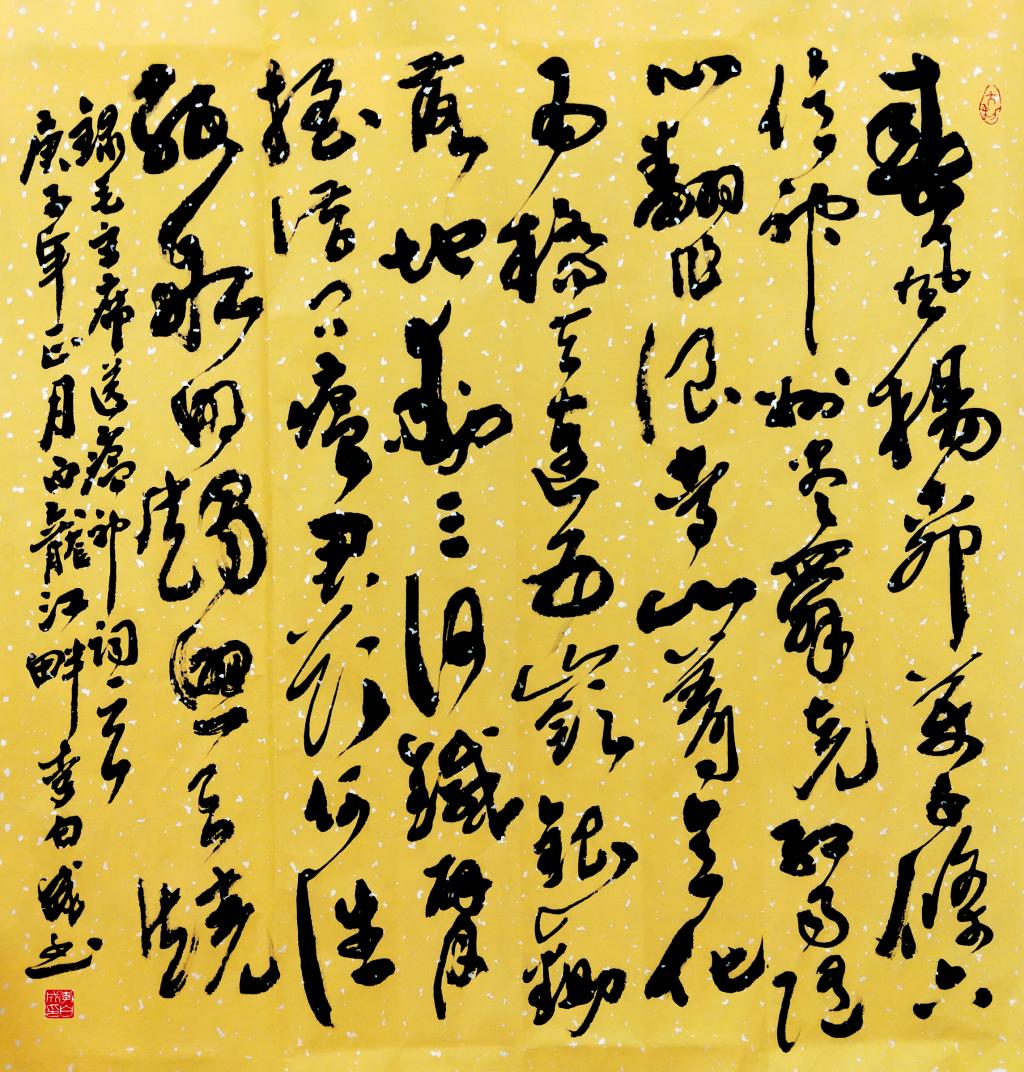 春風楊柳萬千條六
億神州盡舜堯紅雨隨
心翻作浪青山着意化
為橋天連五嶺銀鋤
落地動三河鐵臂
搖借問瘟君欲何往
紙船明燭照天燒
錄毛主席送瘟神詞
庚子年正月龍江畔李白成書
李白成印